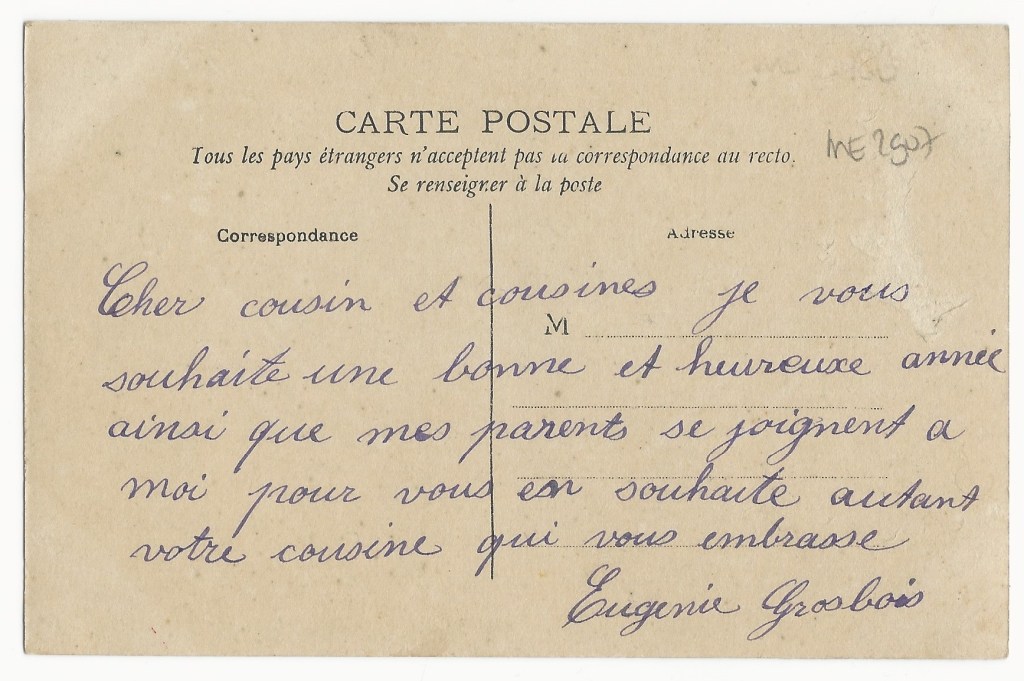 CARTE POSTALE
Tous les pays étrangers n'acceptent pas la correspondance au recto.
Se renseigner à la poste
ME 2907
Correspondance
Adresse
Cher cousin et cousines je vous
M
souhaite une bonne et heureuxe année
ainsi que mes parents se joignent a
moi pour vous en souhaite autant
votre cousine qui vous embrasse
Eugenie Grosbois